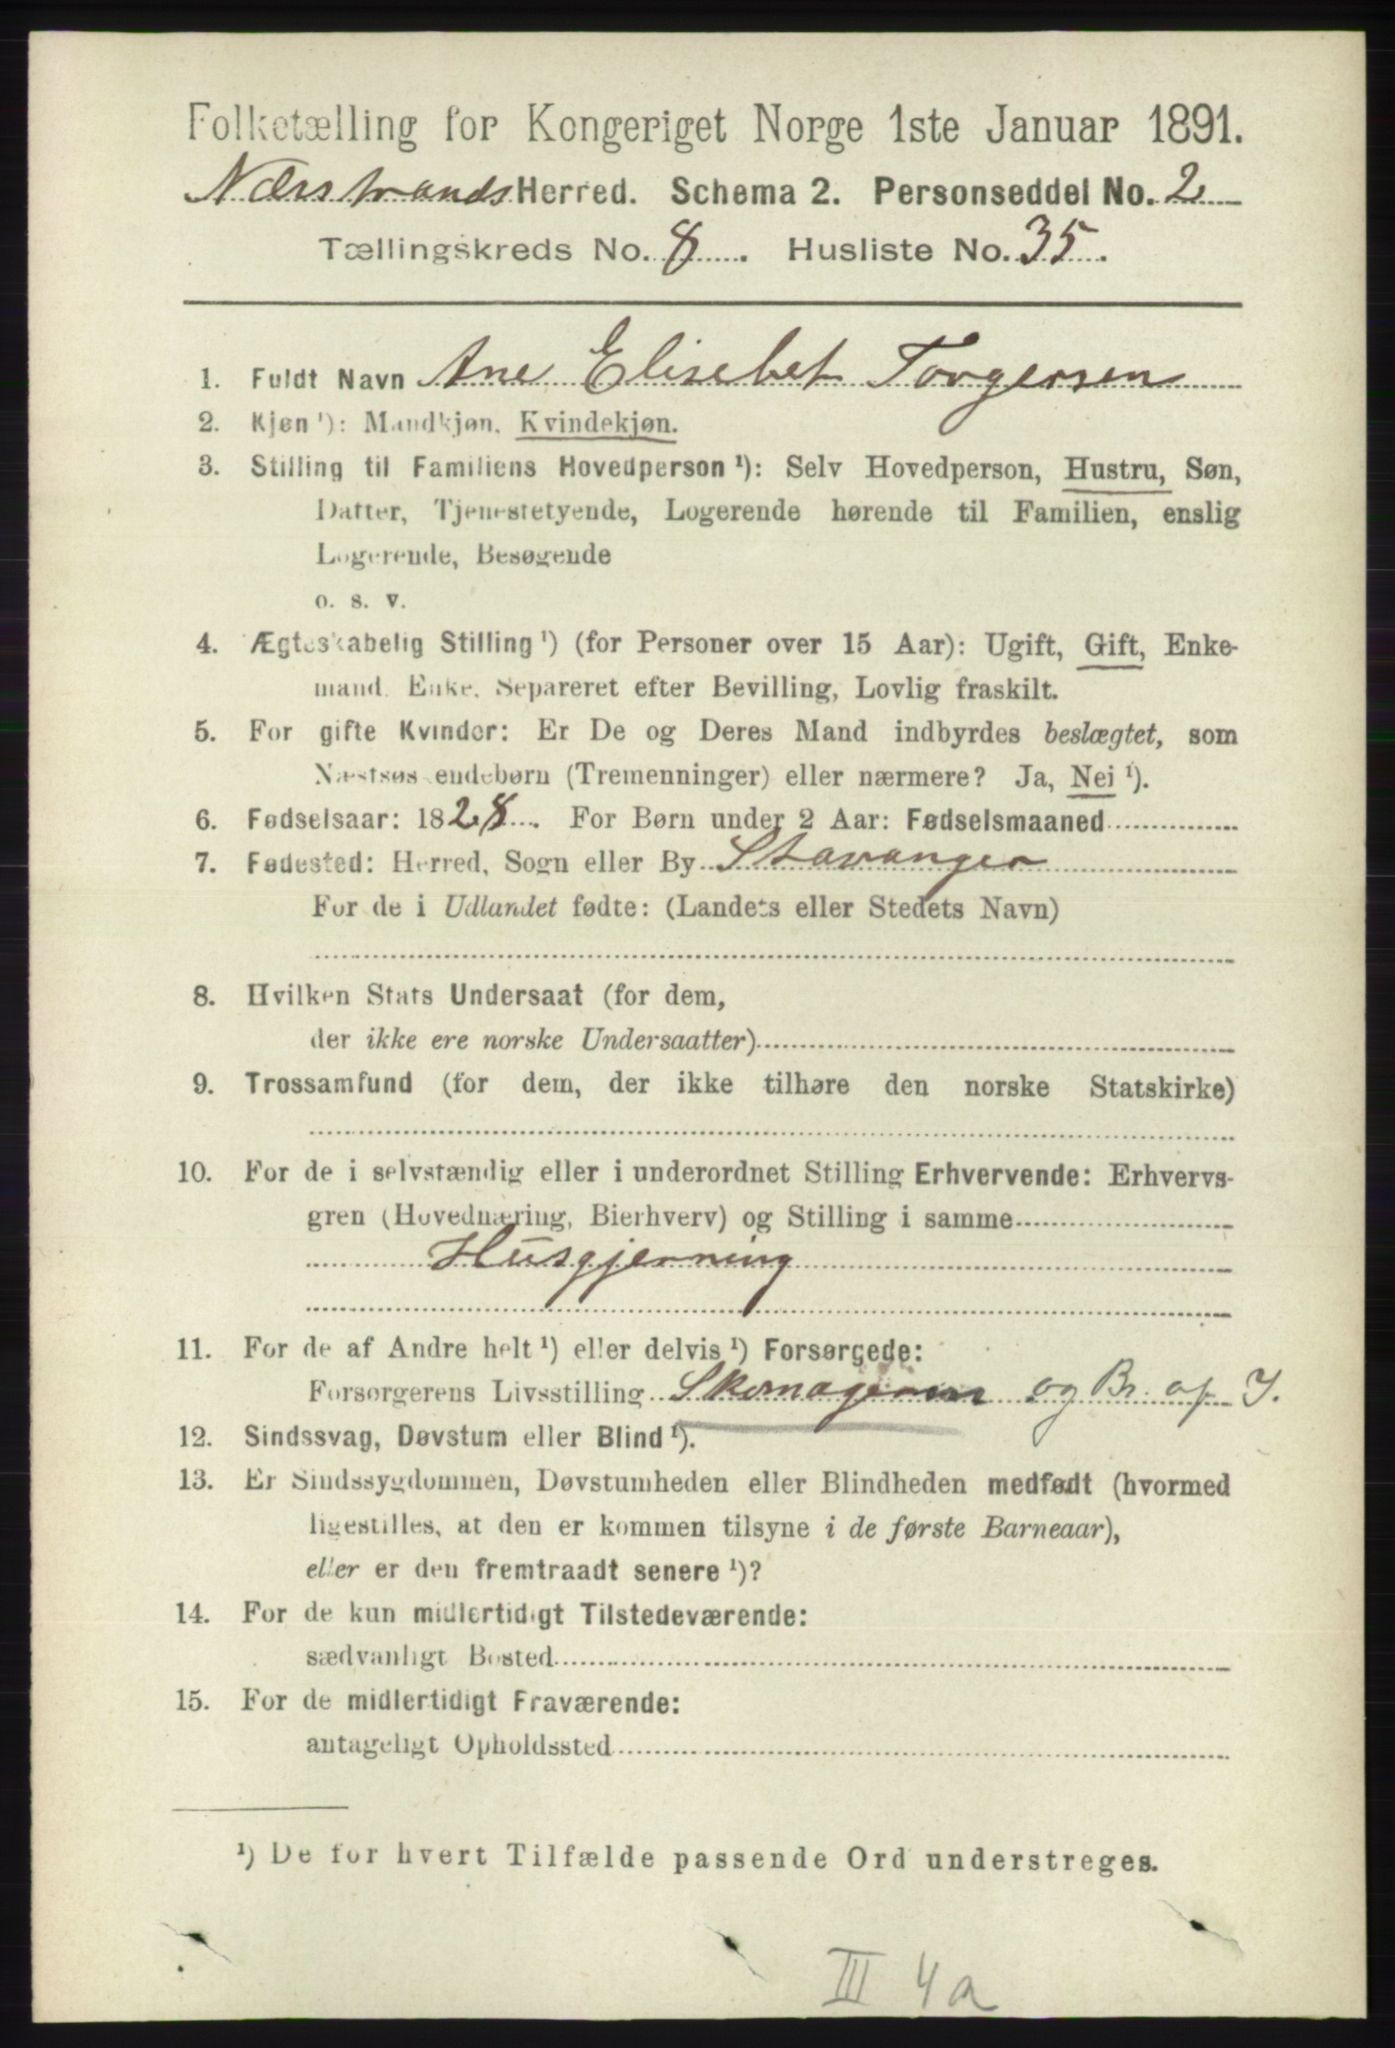 Folketælling for Kongeriget Norge 1ste Januar 1891.
Nærstrands Herred. Schema 2. Personseddel No. 2
Tællingskreds No. 8. Husliste No. 35.
1. Fuldt Navn Ane Elisebet Torgersen
2. Kjøn ¹): Mandkjøn, Kvindekjøn.
3. Stilling til Familiens Hovedperson ¹): Selv Hovedperson, Hustru, Søn,
Datter, Tjenestetyende, Logerende hørende til Familien, enslig
Logerende, Besøgende
o. s. v.
4. Ægteskabelig Stilling ¹) (for Personer over 15 Aar): Ugift, Gift, Enke-
mand, Enke, Separeret efter Bevilling, Lovlig fraskilt.
5. For gifte Kvinder: Er De og Deres Mand indbyrdes beslægtet, som
Næstsøskendebørn (Tremenninger) eller nærmere? Ja, Nei ¹).
6. Fødselsaar: 1828. For Børn under 2 Aar: Fødselsmaaned
7. Fødested: Herred, Sogn eller By Stavanger
For de i Udlandet fødte: (Landets eller Stedets Navn)
8. Hvilken Stats Undersaat (for dem,
der ikke ere norske Undersaatter)
9. Trossamfund (for dem, der ikke tilhøre den norske Statskirke)
10. For de i selvstændig eller i underordnet Stilling Erhvervende: Erhvervs-
gren (Hovednæring, Bierhverv) og Stilling i samme
Husgjerning
11. For de af Andre helt ¹) eller delvis ¹) Forsørgede:
Forsørgerens Livsstilling og Br. af J.
12. Sindssvag, Døvstum eller Blind ¹).
13. Er Sindssygdommen, Døvstumheden eller Blindheden medfødt (hvormed
ligestilles, at den er kommen tilsyne i de første Barneaar),
eller er den fremtraadt senere ¹)?
14. For de kun midlertidigt Tilstedeværende:
sædvanligt Bosted
15. For de midlertidigt Fraværende:
antageligt Opholdssted
¹) De for hvert Tilfælde passende Ord understreges.
III 4a